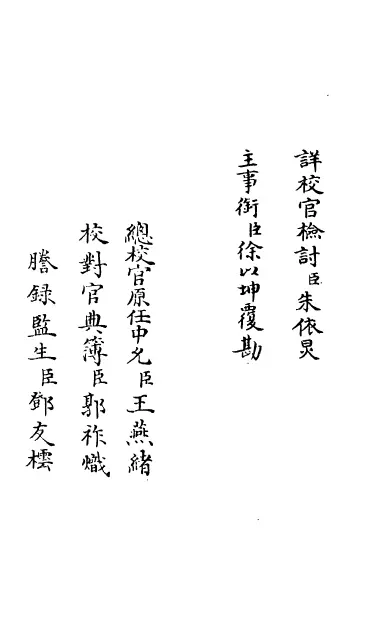 詳校官檢討臣朱依炅
主事銜臣徐以坤覆勘
總校官原任中允臣王燕緒
校對官典簿臣郭祚熾
謄錄監生臣鄧友橒